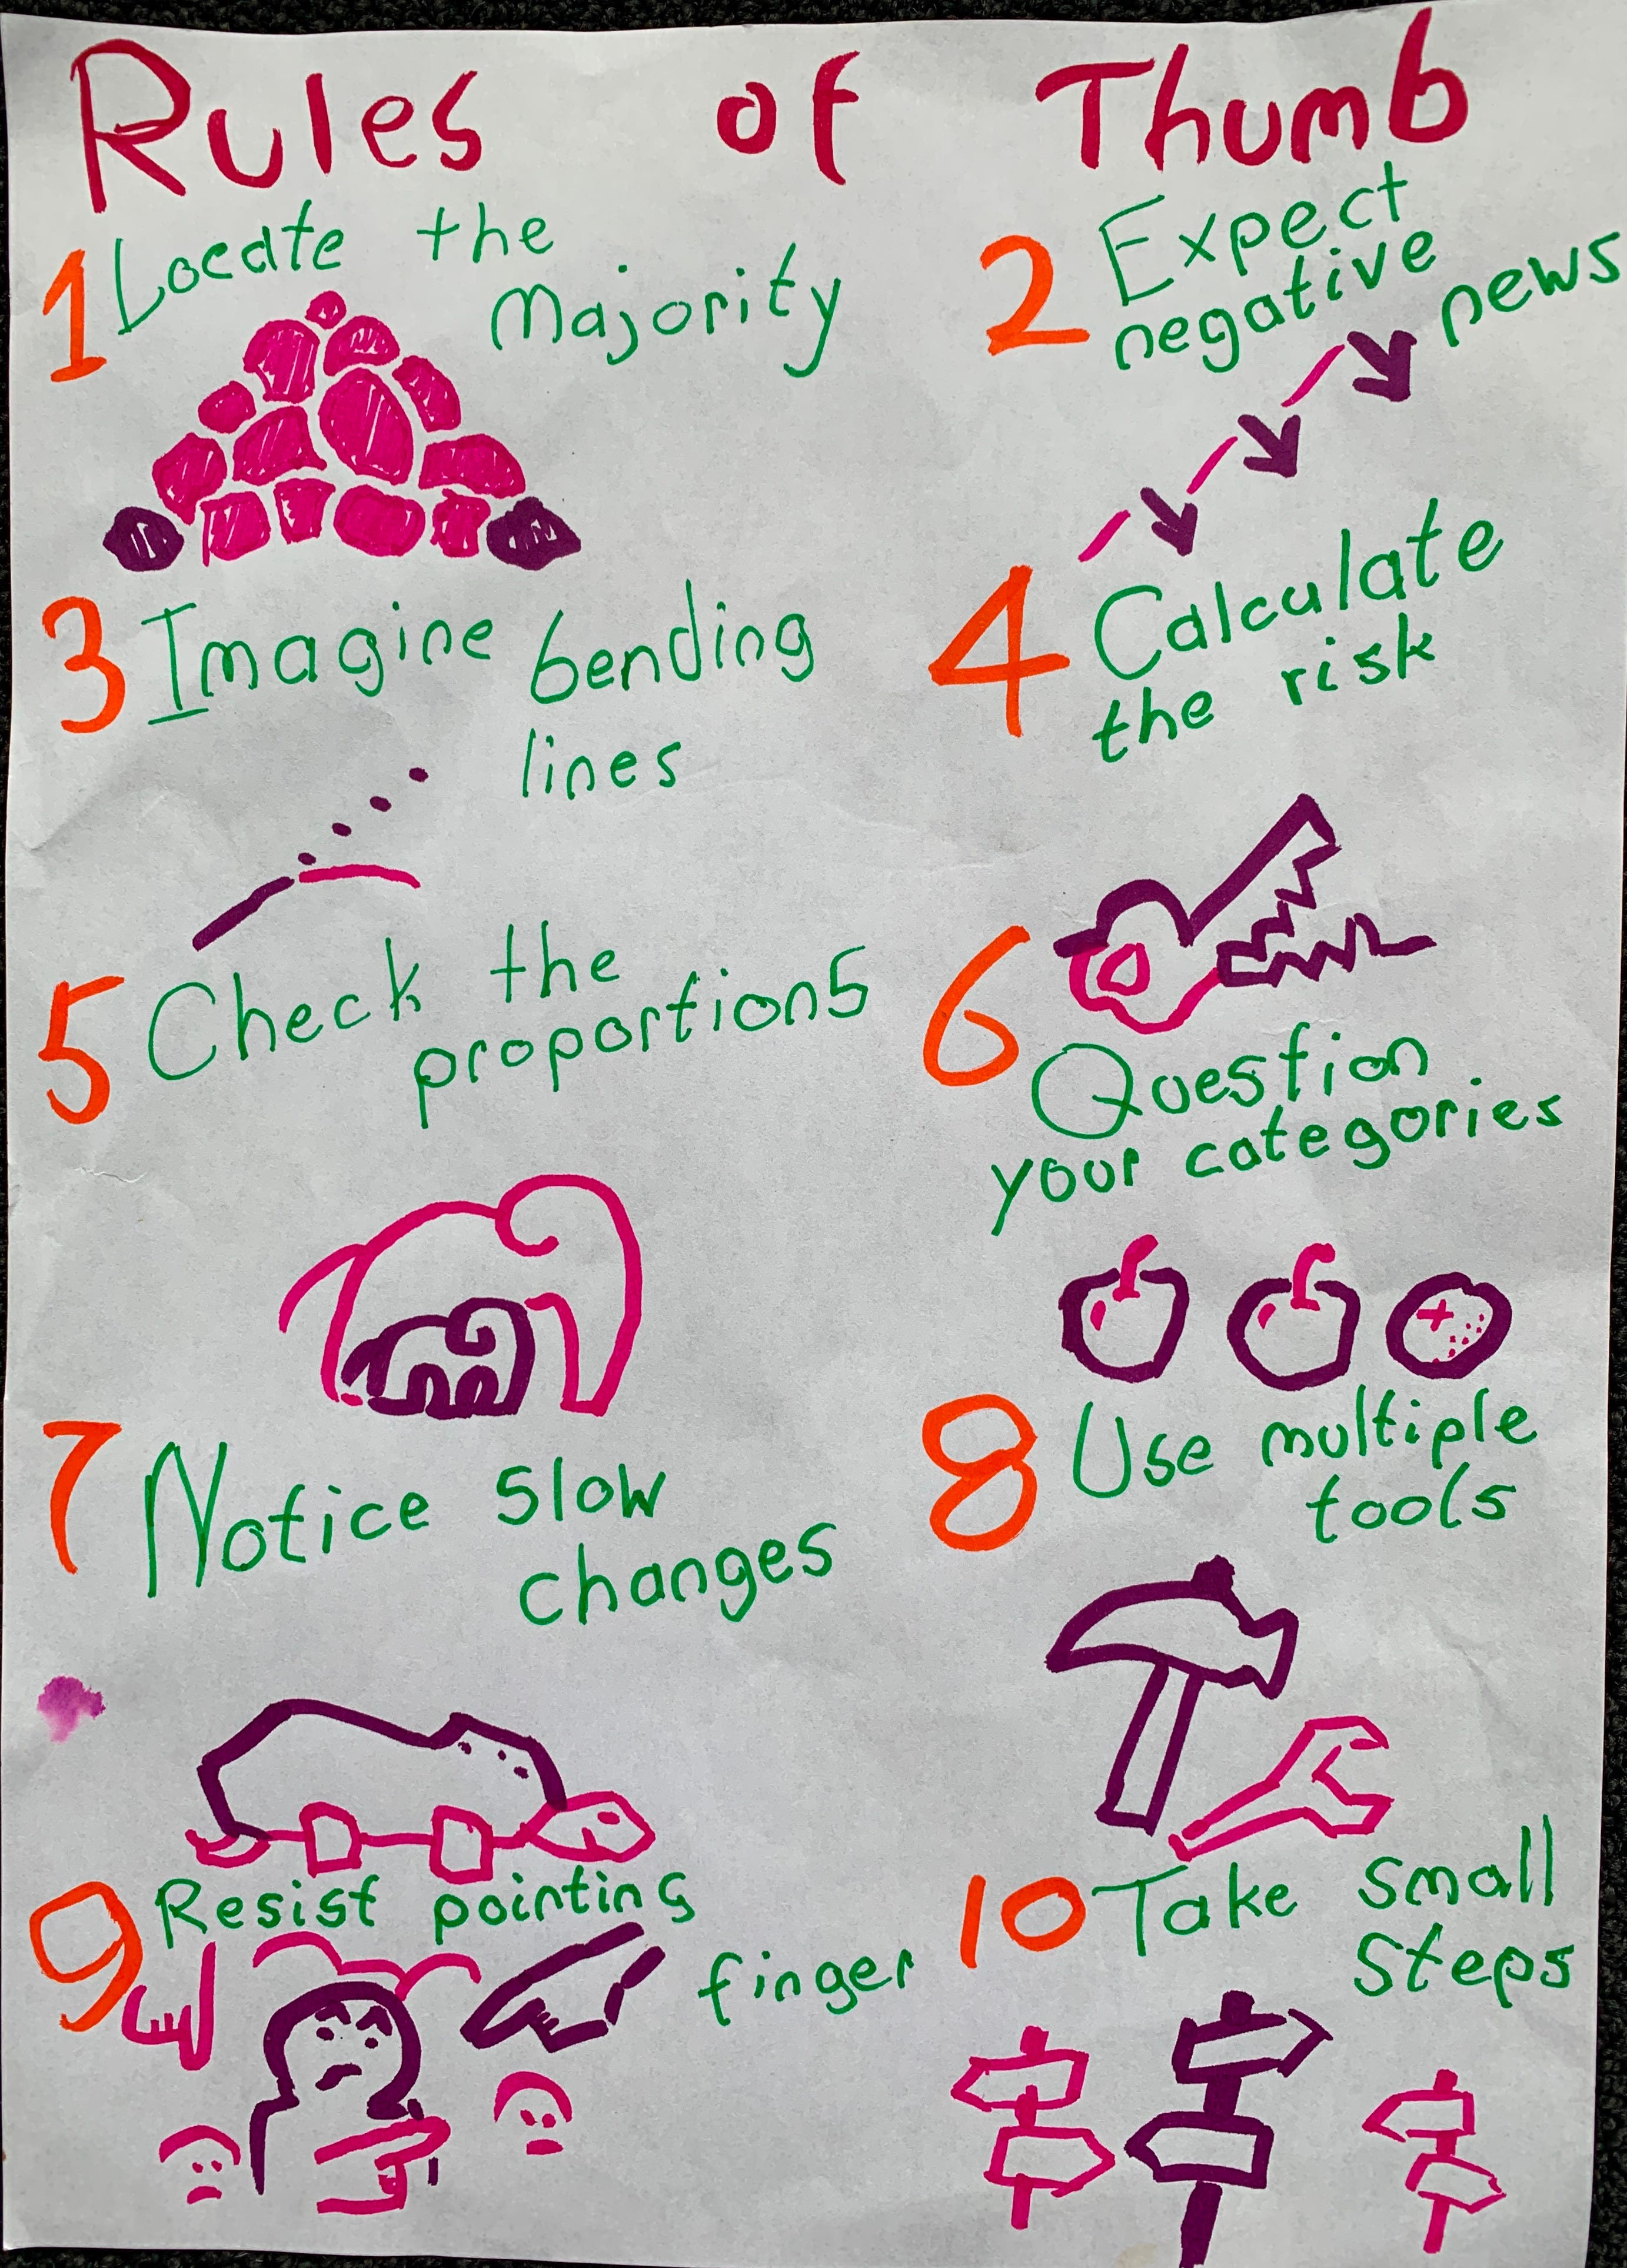 Rules of Thumb
1 Locate the
Majority
2 Expect
negative
news
3 Imagine bending
lines
4 Calculate
the risk
5 Check the
proportions
6 Question
your categories
7 Notice slow
changes
8 Use multiple
tools
9 Resist pointing
finger
10 Take small
steps